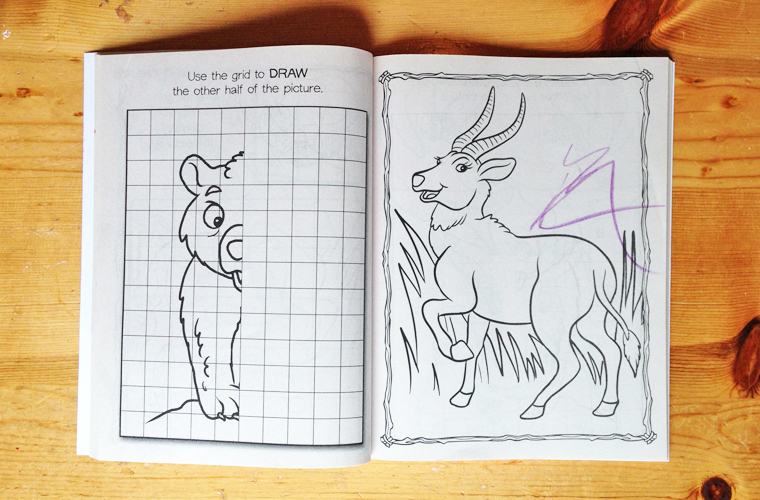 Use the grid to DRAW
the other half of the picture.